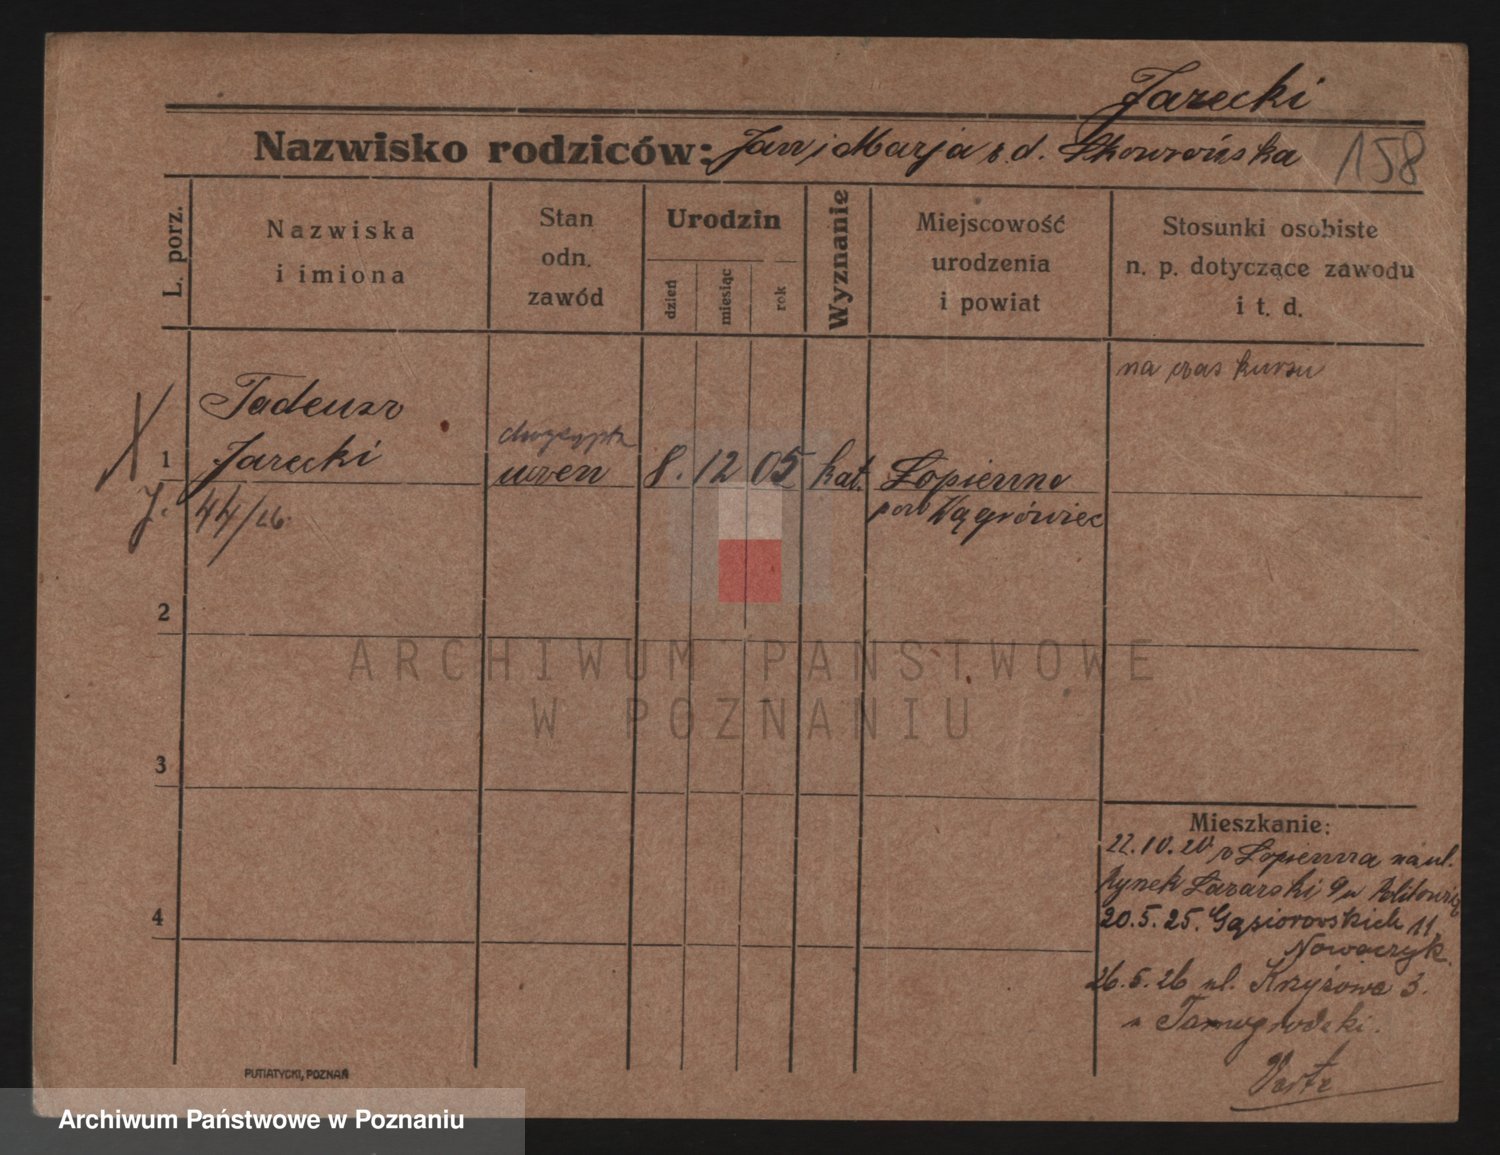 Jarecki
Nazwisko rodziców: Jan i Marja z. d. Skowrońska
158
L. porz.
Nazwiska
i imiona
Stan
odn.
zawód
Urodzin
dzień
miesiąc
rok
Wyznanie
Miejscowość
urodzenia
i powiat
Stosunki osobiste
n. p. dotyczące zawodu
i t. d.
na czas kursu
Tadeusz
1 Jarecki
uczen
8. 12 05 kat. Łopienno
pow Wągrówiec
J. 44/26.
2
3
4
ARCHIWUM PAŃSTWOWE
W POZNANIU
Mieszkanie:
22.10.20 z Łopienna na ul.
Rynek Łazarski 9
20.5.25. Gąsiorowskich 11
Nowaczyk.
26.5.26 ul. Krzyżowa 3.
PUTIATYCKI, POZNAŃ
Archiwum Państwowe w Poznaniu